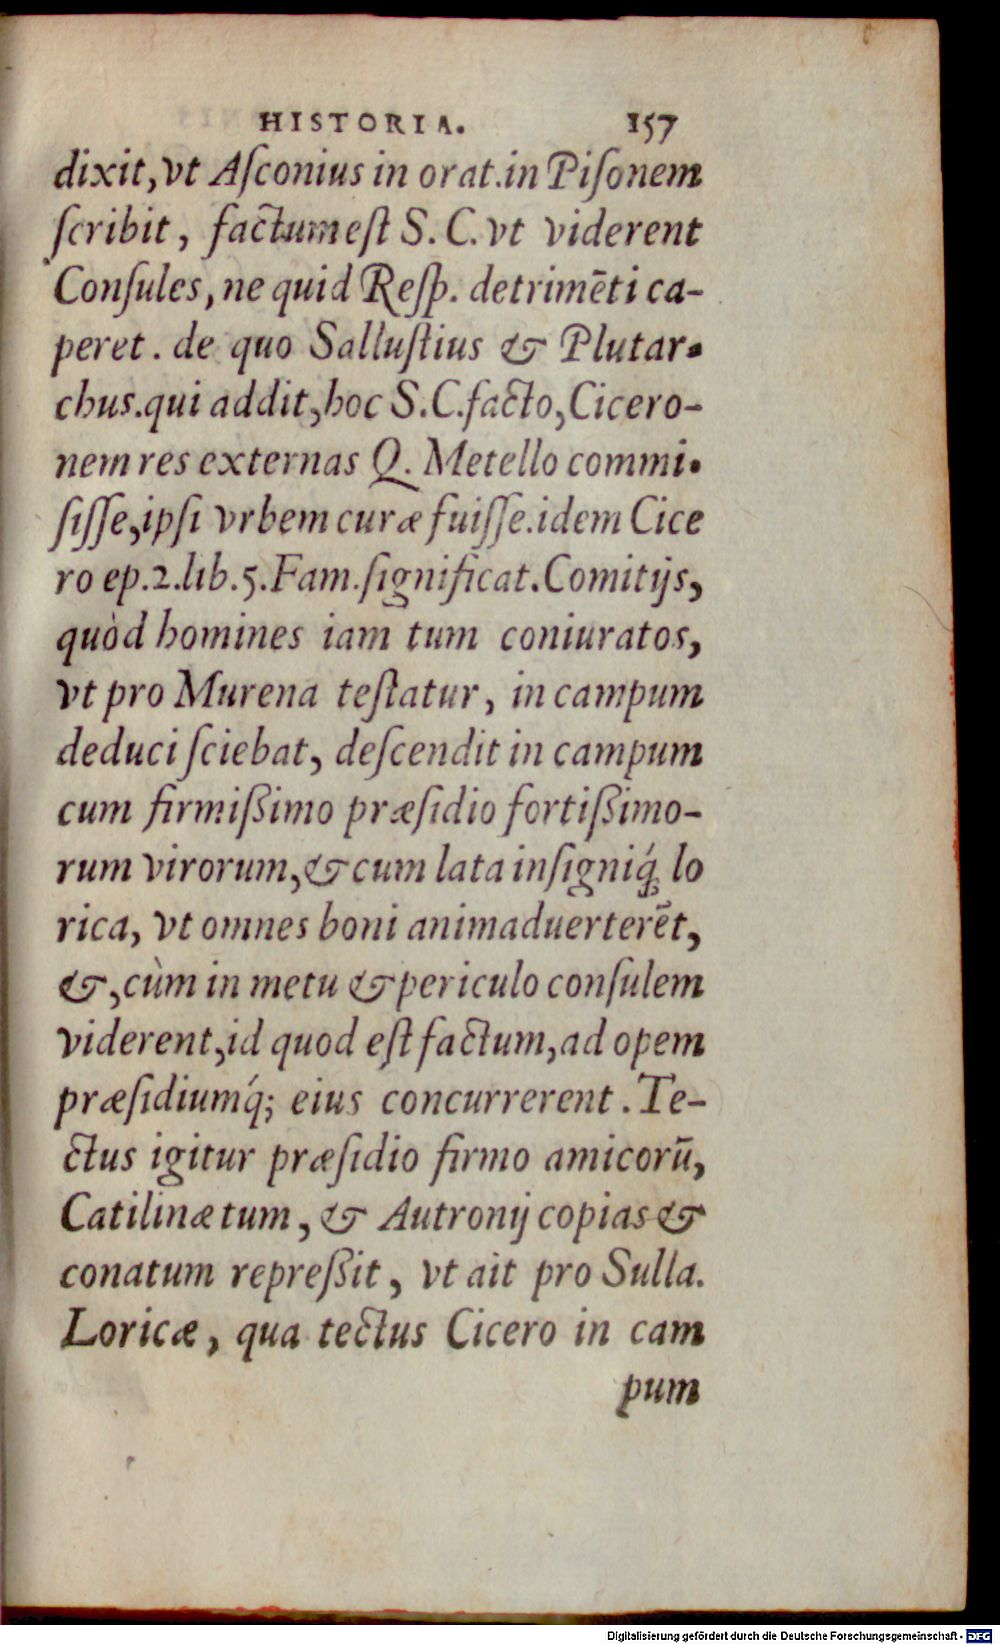 HISTORIA. 157
dixit, vt Aſconius in orat. in Piſonem
ſcribit, factum eſt S. C. vt viderent
Conſules, ne quid Reſp. detrimēti ca-
peret. de quo Salluſtius & Plutar-
chus. qui addit, hoc S.C. facto, Cicero-
nem res externas Q. Metello commi-
ſiſſe, ipſi vrbem curæ fuiſſe. idem Cice
ro ep. 2. lib. 5. Fam. ſignificat. Comitijs,
quòd homines iam tum coniuratos,
vt pro Murena teſtatur, in campum
deduci ſciebat, deſcendit in campum
cum firmißimo præſidio fortißimo-
rum virorum, & cum lata inſigniq́ꝫ lo
rica, vt omnes boni animaduerterēt,
&, cùm in metu & periculo conſulem
viderent, id quod eſt factum, ad opem
præſidiumq́; eius concurrerent. Te-
ctus igitur præſidio firmo amicorū,
Catilinæ tum, & Autronij copias &
conatum repreßit, vt ait pro Sulla.
Loricæ, qua tectus Cicero in cam
pum
Digitalisierung gefördert durch die Deutsche Forschungsgemeinschaft - DFG